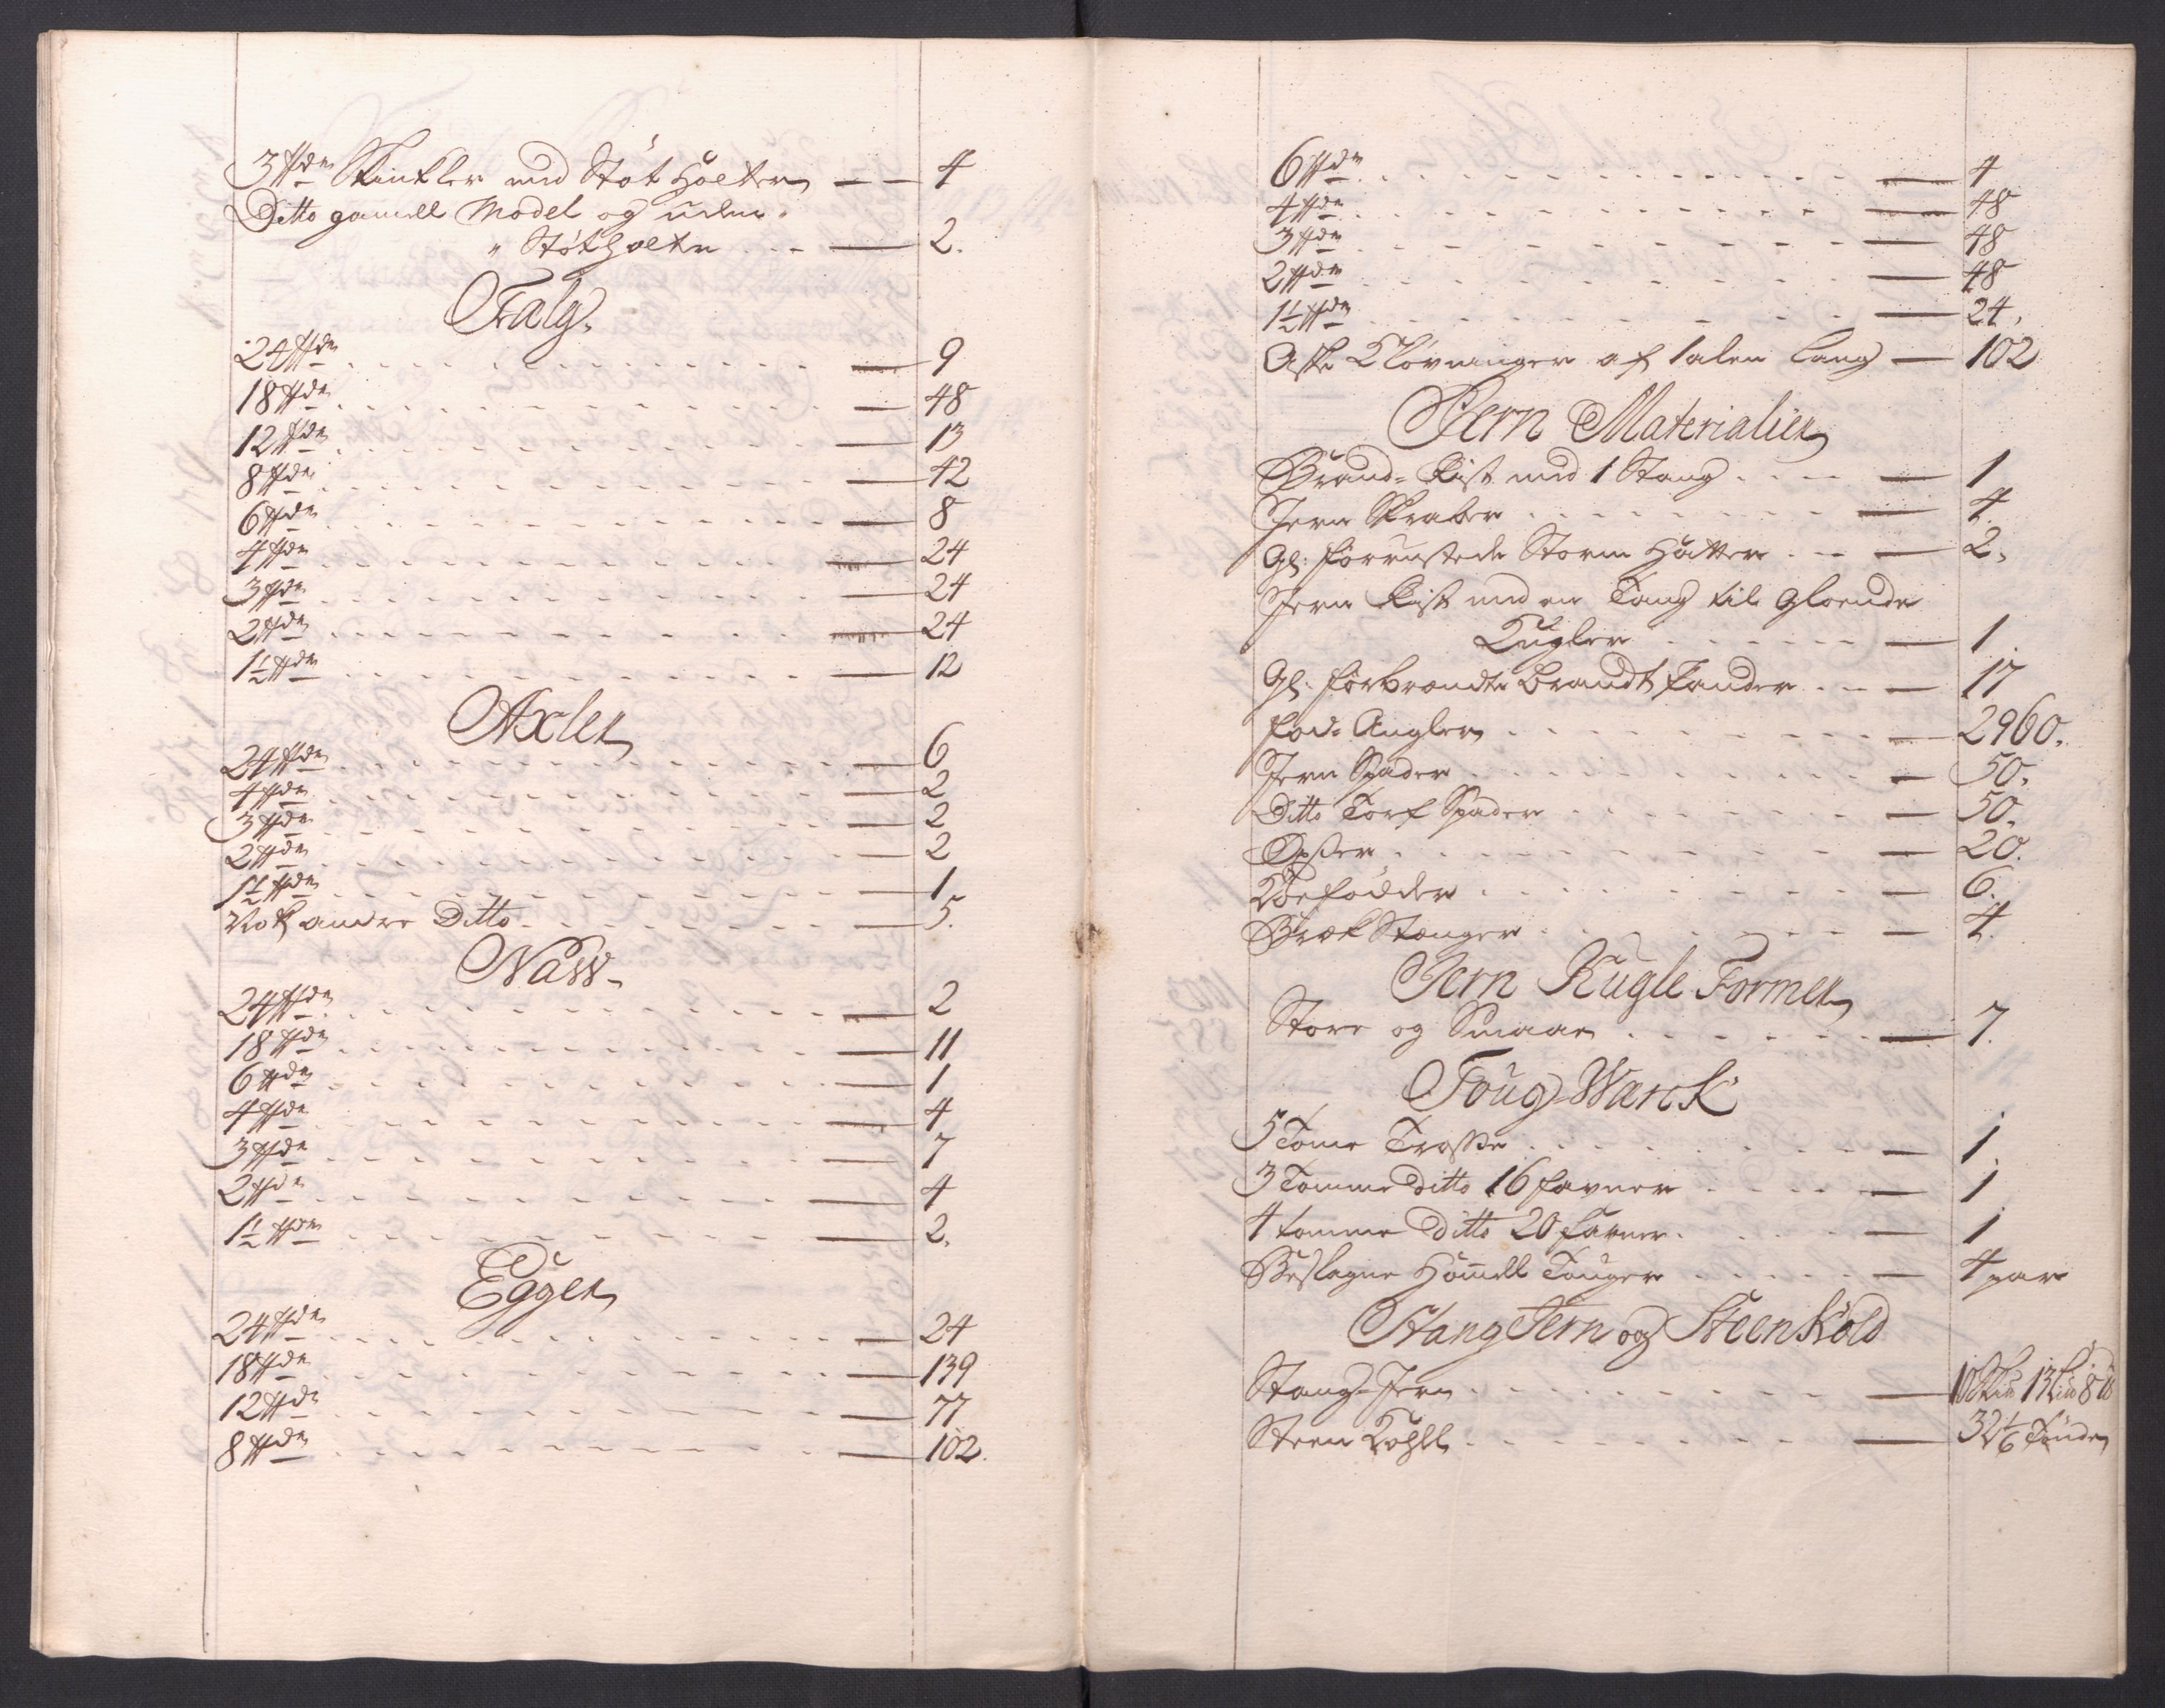 3 ℔de Skinkler med Støt Holter — 4
Ditto gamell Model og uden
" Støtholter — 2.
Falg.
24 ℔de — 9
18 ℔de — 48
12 ℔de — 13
8 ℔de — 42
6 ℔de — 8
4 ℔de — 24
3 ℔de — 24
2 ℔de — 24
1½ ℔de — 12
Axler
24 ℔de — 6
4 ℔de — 2
3 ℔de — 2
2 ℔de — 2
1½ ℔de — 1
Nok andre Ditto — 5.
Naw
24 ℔de — 2
18 ℔de — 11
6 ℔de — 1
4 ℔de — 4
3 ℔de — 7
2 ℔de — 4
1½ ℔de — 2.
Eger
24 ℔de — 24
18 ℔de — 139
12 ℔de — 77
8 ℔de — 102.
6 ℔de — 4
4 ℔de — 48
3 ℔de — 48
2 ℔de — 48
1½ ℔de — 24.
Aske Kløvninger af 1 alen lang — 102
Jern Materialier
Brand-Rist med 1 Stang — 1
Jern Skraber — 4
Gl: forrustede Storm Hatter — 2.
Jern Rist med en Tang til Gloende
Kugler — 1.
Gl: forbrændte Brandt Pander — 17
Fod Angler — 2960.
Jern Spader — 50.
Ditto Torf Spader — 50.
Øxser — 20.
Koefødder — 6.
Bræk Stænger — 4.
Jern Kugle Former
Store og Smaae — 7.
Toug-Warck
5 Tome Trosse — 1.
3 Tomme ditto 16 favner — 1
4 tomme Ditto 20 favner — 1
Beslagne Hamell Touger — 4 par
Stang Jern og Steen Kold
Stang-Jern — 10 Sk℔ 13 L℔ 8 ℔
Steen Kohll — 32 1/6 Tønde